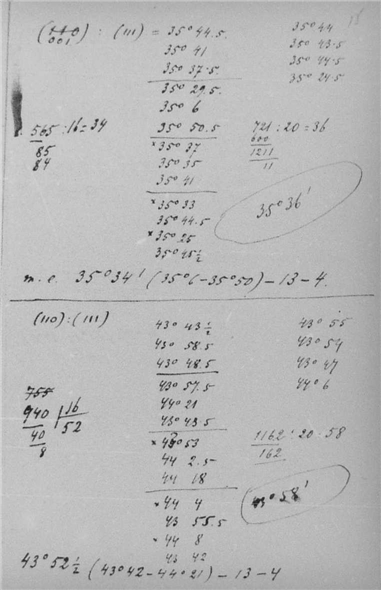 (110) : (111) = 35° 44.5. 35° 44
001 35° 41 35° 43.5
35° 37.5. 35° 44.5
35° 29.5. 35° 24.5
35° 6
565 : 16 = 34 35° 50.5 721 : 20 = 36
85 × 35° 37 600
84 35° 35 1211
35° 41 11
× 35° 33 35° 36'
35° 44.5
× 35° 25
35° 45½
т. е. 35° 34' (35°6 – 35°50) – 13 – 4.
(110) : (111) 43° 43½ 43° 55
43° 58.5 43° 54
43° 48.5 43° 47
755 43° 57.5 44° 6
940 | 16 44° 21
40 52 43° 43.5
8 × 43° 53 1162 : 20 = 58
44 2.5 162
44 18
× 44 4 43° 58'
43 55.5
× 44 8
43 42
43° 52½ (43°42 – 44°21) – 13 – 4